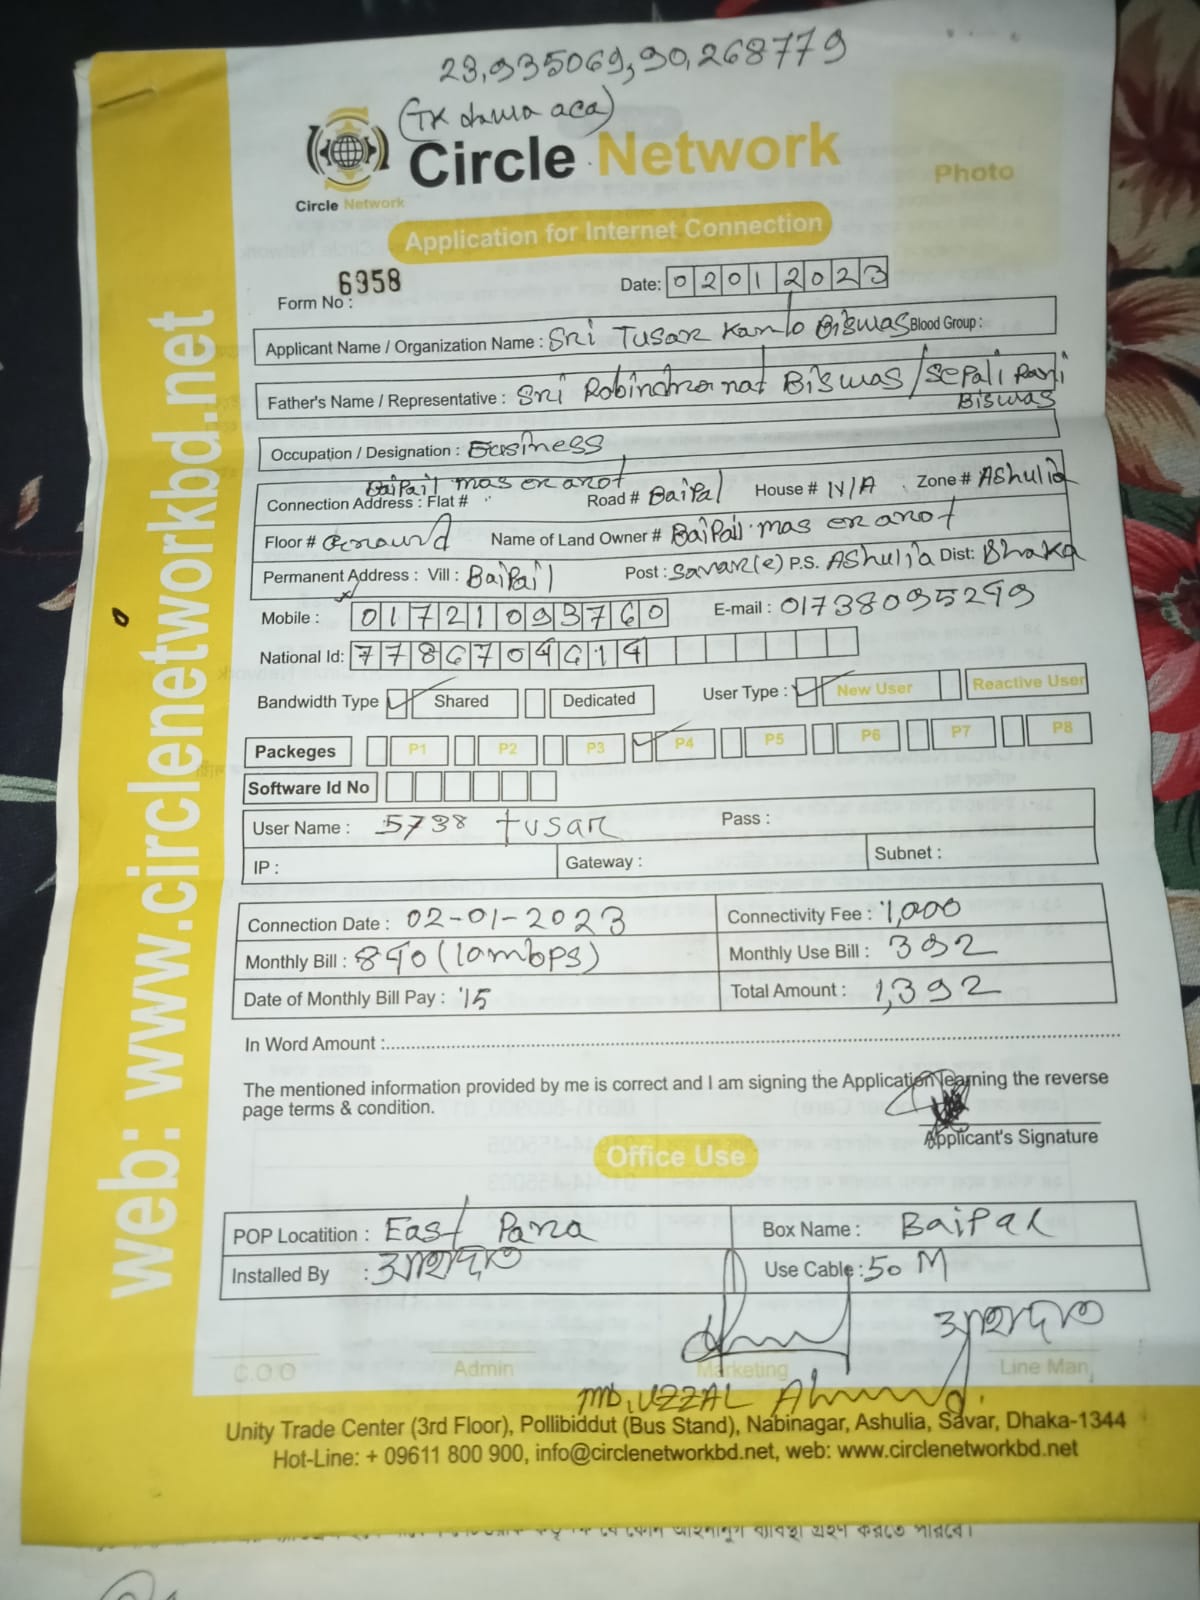 23,935069,90,268779
(TK dawa aca)
Circle Network
Circle Network
Photo
Application for Internet Connection
Form No : 6958
Date: 02012023
Applicant Name / Organization Name : Sri Tusar Kanto Biswas Blood Group :
Father's Name / Representative : Sri Robindra nat Biswas / Sepali Rani
Biswas
Occupation / Designation : Business
Baipail mas er arot
Connection Address : Flat # Road # Baipal House # N/A Zone # Ashulia
Floor # Ground Name of Land Owner # Baipail mas er arot
Permanent Address : Vill : Baipail Post : Savar (e) P.S. Ashulia Dist: Dhaka
Mobile : 01721093760 E-mail : 01738095299
National Id: 7786704614
Bandwidth Type Shared Dedicated User Type : New User Reactive User
Packeges P1 P2 P3 P4 P5 P6 P7 P8
Software Id No
User Name : 5738 tusar Pass :
IP : Gateway : Subnet :
Connection Date : 02-01-2023 Connectivity Fee : 1,000
Monthly Bill : 840 (10mbps) Monthly Use Bill : 392
Date of Monthly Bill Pay : 15 Total Amount : 1,392
In Word Amount :
The mentioned information provided by me is correct and I am signing the Application learning the reverse
page terms & condition.
Applicant's Signature
Office Use
POP Locatition : East Para Box Name : Baipal
Installed By : আহাদ Use Cable : 50 M
C.O.O Admin Marketing Line Man
MD. UZZAL Ahmed.
Unity Trade Center (3rd Floor), Pollibiddut (Bus Stand), Nabinagar, Ashulia, Savar, Dhaka-1344
Hot-Line: + 09611 800 900, info@circlenetworkbd.net, web: www.circlenetworkbd.net
web: www.circlenetworkbd.net